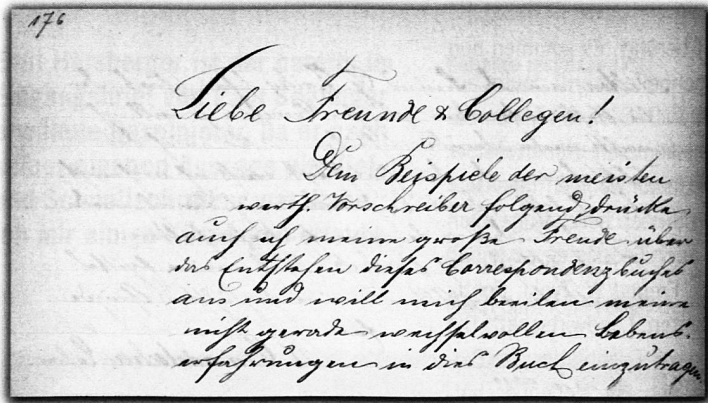 176
Liebe Freunde & Collegen!
Dem Beispiele der meisten
werth. Vorschreiber folgend, drücke
auch ich meine große Freude über
das Entstehen dieses Correspondenzbuches
aus und will mich beeilen meine
nicht gerade wechselvollen Lebens-
erfahrungen in dies Buch einzutragen